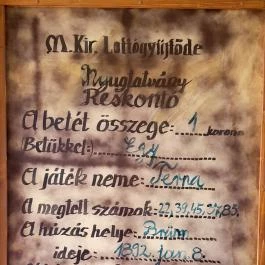 M. Kir. Lottógyüjtöde
Nyugtatvány
Reskontó
A betét összege: 1 korona
(Betükkel:) Egy
A játék neme: Terna
A meglett számok: 22, 39, 45, 37, 85.
A húzás helye: Brünn
ideje: 1892. jan. 8.